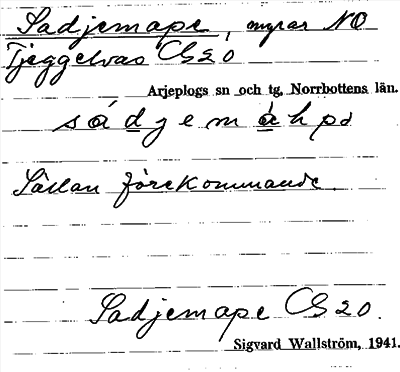 Sadjemape, myrar NO
Tjeggelvas C820
Arjeplogs sn och tg, Norrbottens län.
sádyemáhpə
Sällan förekommande.
Sadjemape C820.
Sigvard Wallström, 1941.